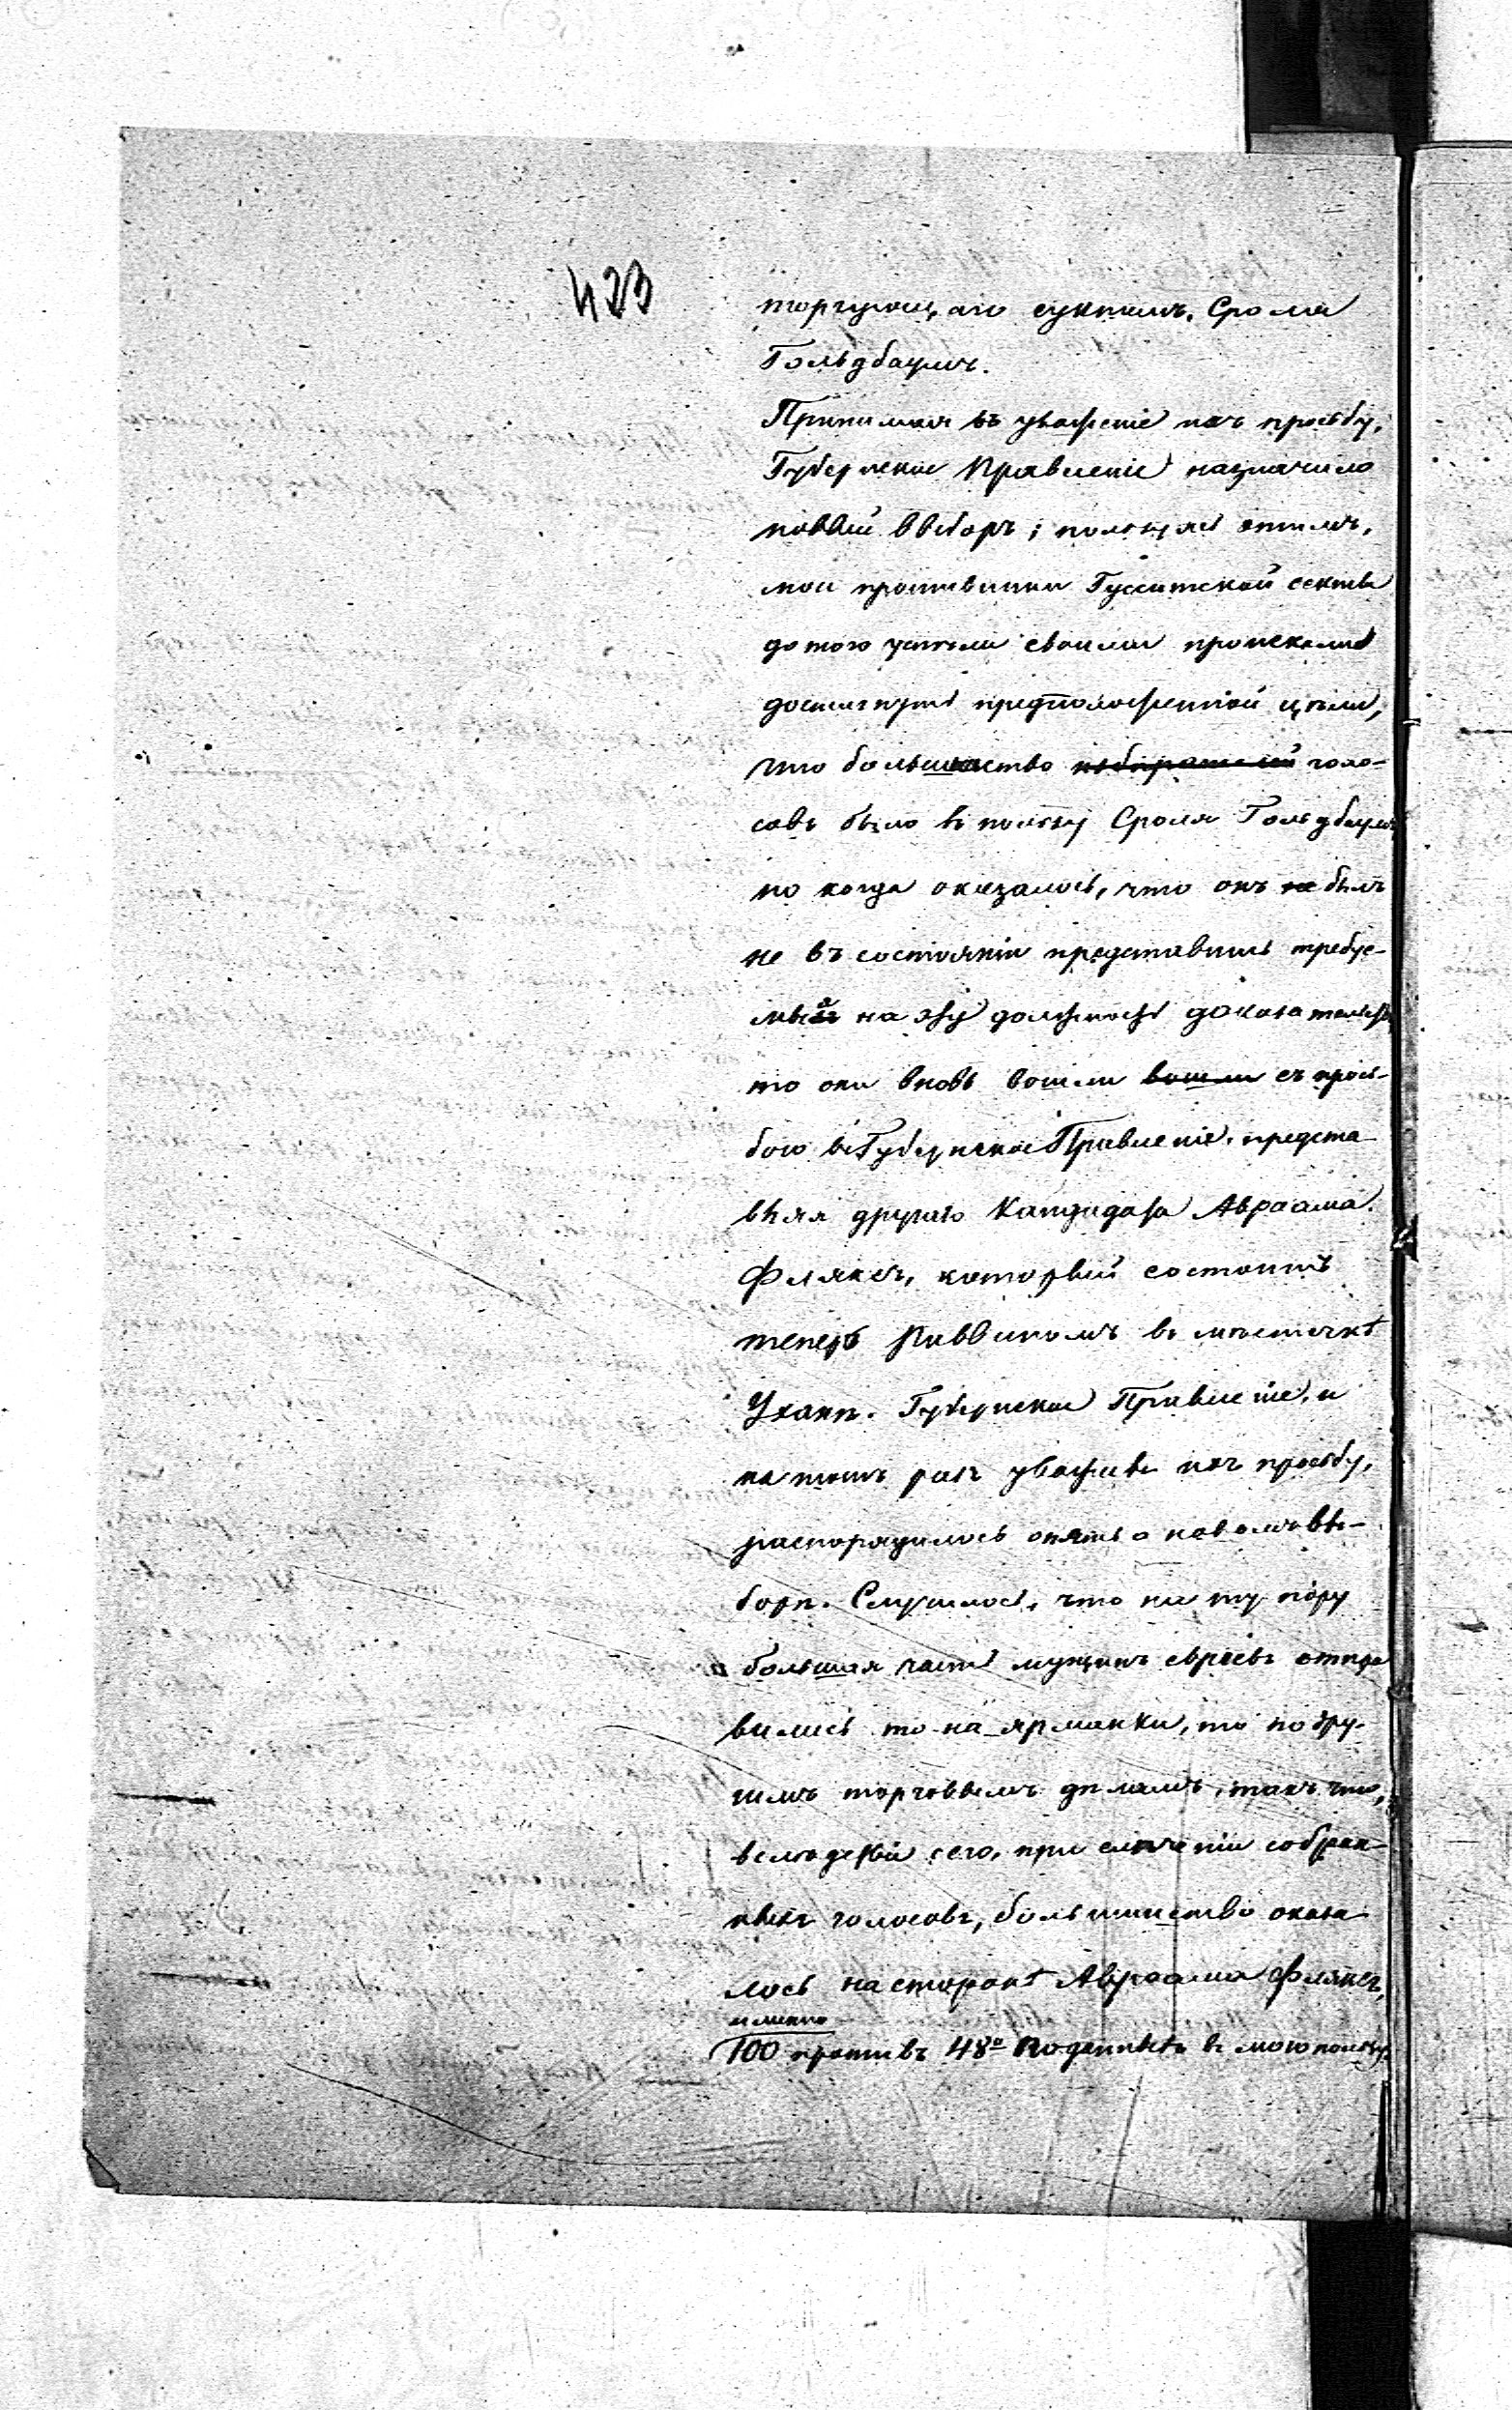 423
торгующаго сукномъ, Срома
Гольдбаума.
Принимая въ уваженіе ихъ просьбу,
Губернское Правленіе назначило
новый выборъ; пользуясь этимъ,
мои противники Гусситской секты
до того успѣли своими происками
достигнуть предположенной цѣли,
что большинство избирателей голо-
совъ было въ пользу Сроля Гольдбаума
но когда оказалось, что онъ не былъ
не въ состояніи представить требуе-
мый на эту должность доказательствъ
то они вновь вошли вошли съ прось-
бою въ Губернское Правленіе, предста-
вляя другаго Кандидата Авраама
Флякса, который состоитъ
теперь Раввиномъ въ мѣстечкѣ
Уханѣ. Губернское Правленіе, и
на этотъ разъ уваживъ ихъ просьбу,
распорядилось опять о новомъ вы-
борѣ. Случилось, что на ту пору
большая часть мужчинъ евреевъ отпра
вились то на ярманки, то по дру-
гимъ торговымъ дѣламъ, такъ что,
вслѣдствіи сего, при сличеніи собран-
ныхъ голосовъ, большинство оказа-
лось на сторонѣ Авраама Флякса,
именно
100 противъ 48ᵒ поданныхъ въ мою пользу.